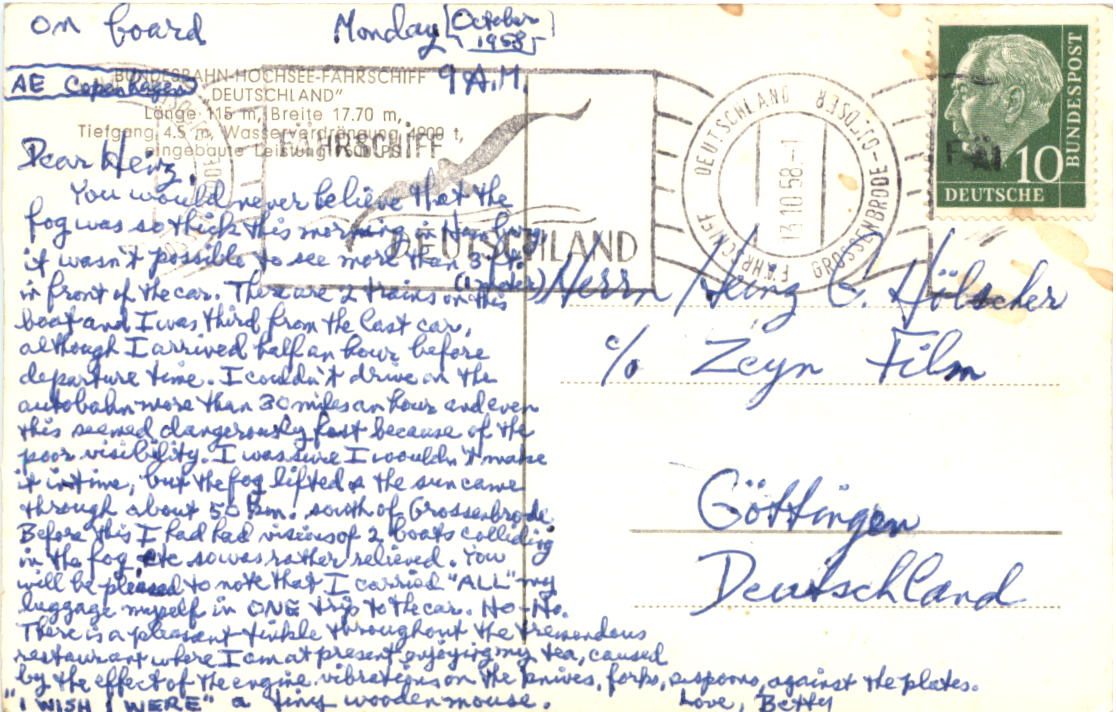 on board
Monday [October 1958]
9 A.M.
AE Copenhagen
BUNDESBAHN-HOCHSEE-FÄHRSCHIFF
"DEUTSCHLAND"
Länge 115 m, Breite 17.70 m,
Tiefgang 4.5 m, Wasserverdrängung t,
eingebaute Leistung
FÄHRSCHIFF
DEUTSCHLAND
FÄHRSCHIFF DEUTSCHLAND
GROSSENBRODE-
13.10.58.-
DEUTSCHE
BUNDESPOST
10
Dear Heinz,
You would never believe that the
fog was so thick this morning in Hamburg
it wasn't possible to see more than 3 ft.
(1 meter)
in front of the car. There are 2 trains on this
boat and I was third from the last car,
although I arrived half an hour before
departure time. I couldn't drive on the
autobahn more than 30 miles an hour and even
this seemed dangerously fast because of the
poor visibility. I was sure I wouldn't make
it in time, but the fog lifted & the sun came
through about 50 km. south of Grossenbrode.
Before this I had had visions of 2 boats colliding
in the fog etc so was rather relieved. You
will be pleased to note that I carried "ALL" my
luggage myself in ONE trip to the car. Ho-Ho.
There is a pleasant tinkle throughout the tremendous
restaurant where I am at present enjoying my tea, caused
by the effect of the engine vibrations on the knives, forks, spoons, against the plates.
"I WISH I WERE" a tiny wooden mouse.
Love, Betty
Herrn Heinz G. Hölscher
c/o Zeyn Film
Göttingen
Deutschland